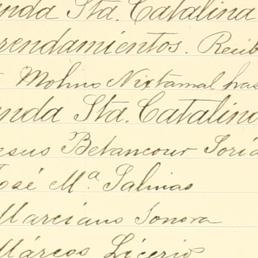 nda Sta. Catalina
rrendamientos. Recib
Molino Nixtamal
nda Sta. Catalina
esus Betancour Soria
José Mª Salinas
Marciano Sonora
Márcos Licerio